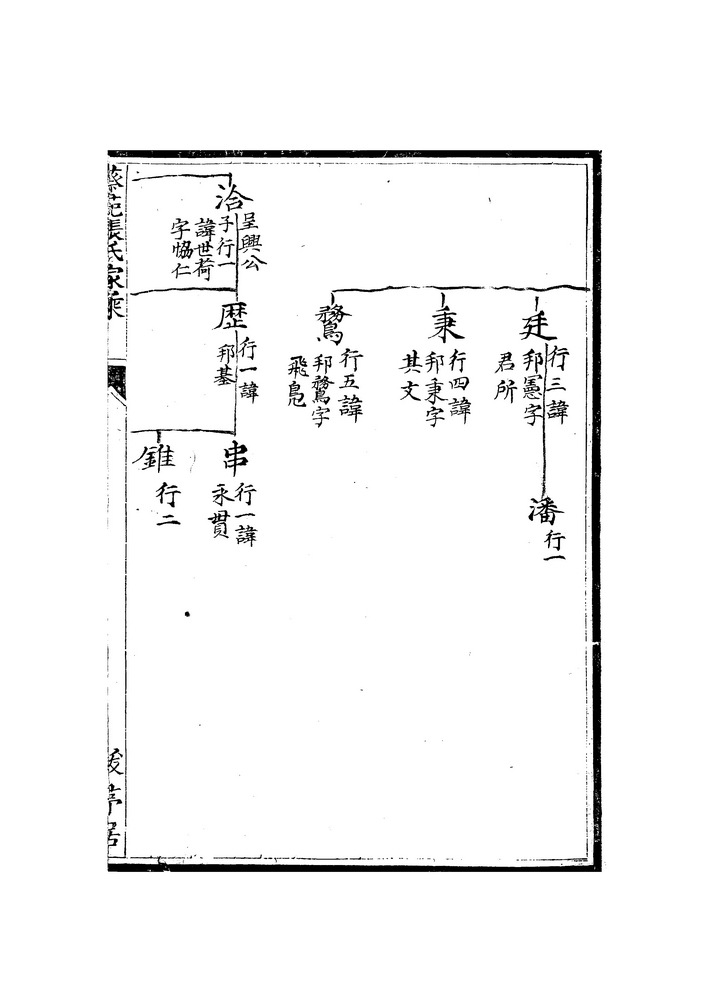 廷
行三諱
邦憲字
君所
潘
行一
秉
行四諱
邦秉字
其文
鶩
行五諱
邦鶩字
飛鳧
洽
呈興公
子行一
諱世荷
字恊仁
歷
行一諱
邦基
串
行一諱
永貫
錐
行二
張氏家乘